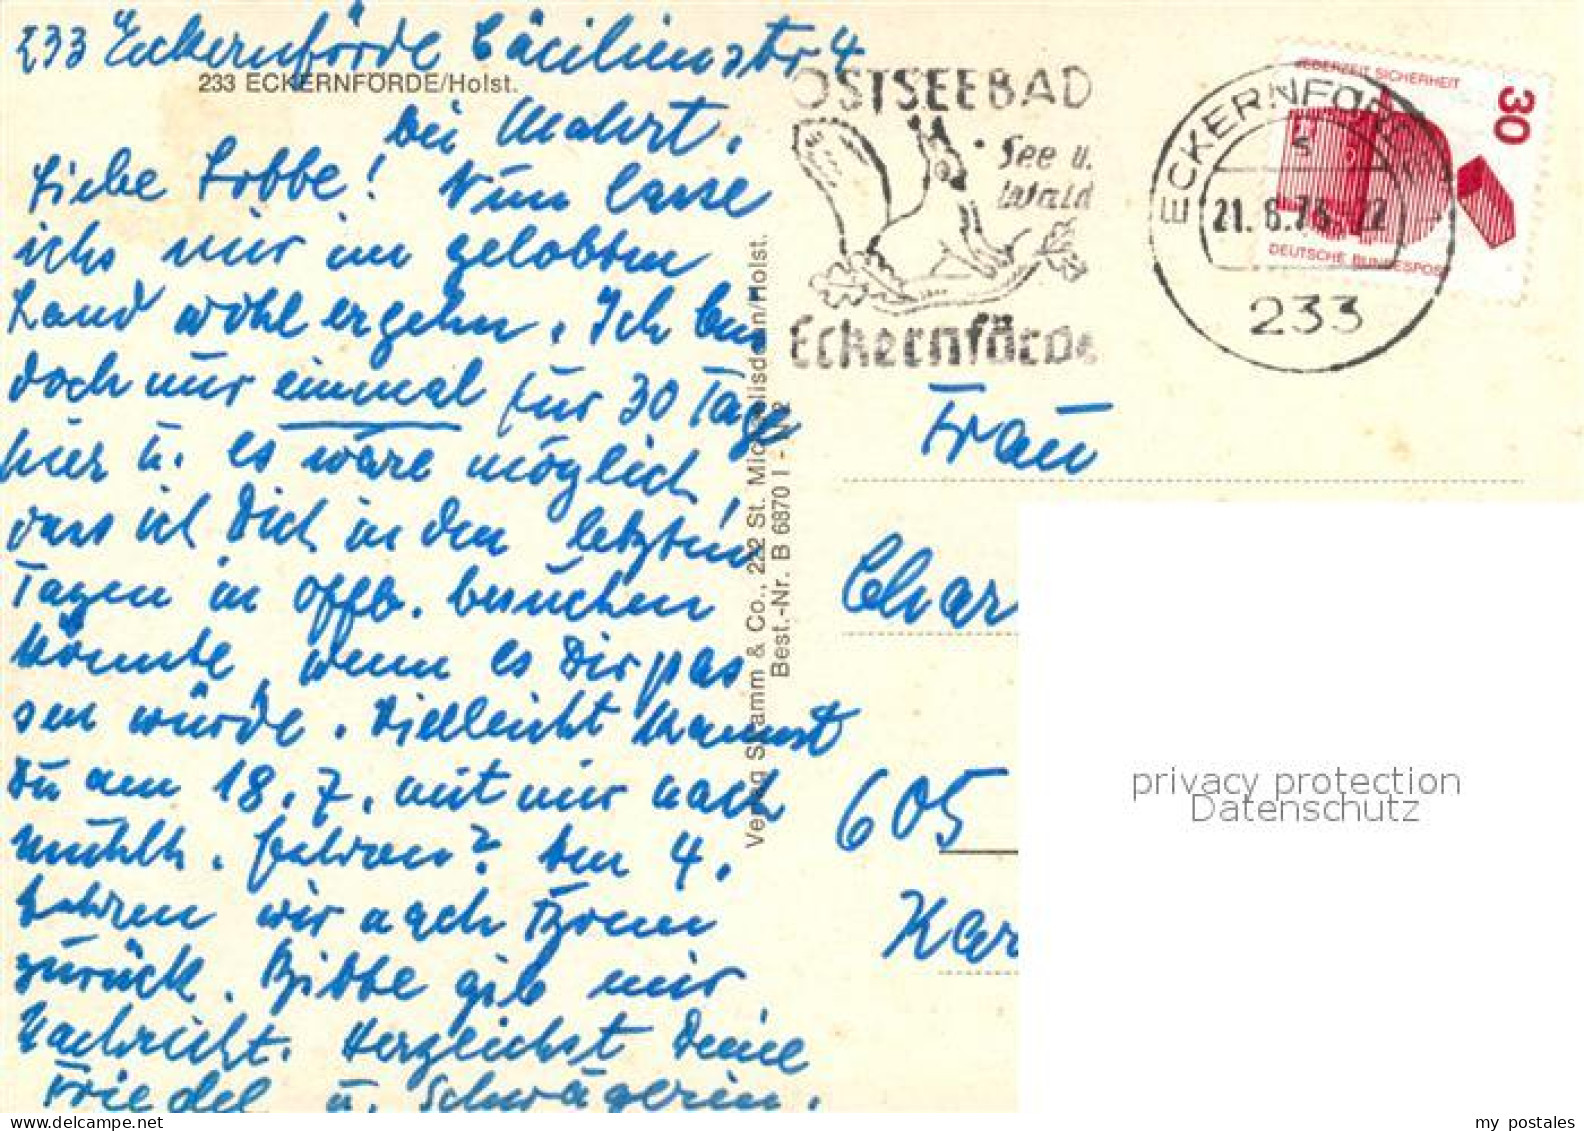 233 Eckernförde Cäcilienstr 4
233 ECKERNFÖRDE/Holst.
bei
Liebe Lobbe! Nun lasse
ichs mir im gelobten
Land wohl ergehn. Ich bin
doch nur einmal für 30 Tage
hier u. es wäre möglich,
dass ich Dich in den letzten
Tagen in Offb. besuchen
könnte, wenn es Dir pas
sen würde. Vielleicht kannst
Du am 18. 7. mit mir nach
Mühlh. fahren? Am 4.
fahren wir nach Bonn
zurück. Bitte gib mir
Nachricht. Herzlichst Deine
Friedel u. Schwägerin.
Verlag Stramm & Co., 222 St. Michaelisdonn/Holst.
Best.-Nr. B 6870 I -
OSTSEEBAD
See u.
Wald
Eckernförde
ECKERNFÖRDE
21. 6. 75
233
JEDERZEIT SICHERHEIT
30
DEUTSCHE BUNDESPOST
Frau
Char
605
Kar
privacy protection
Datenschutz
my postales